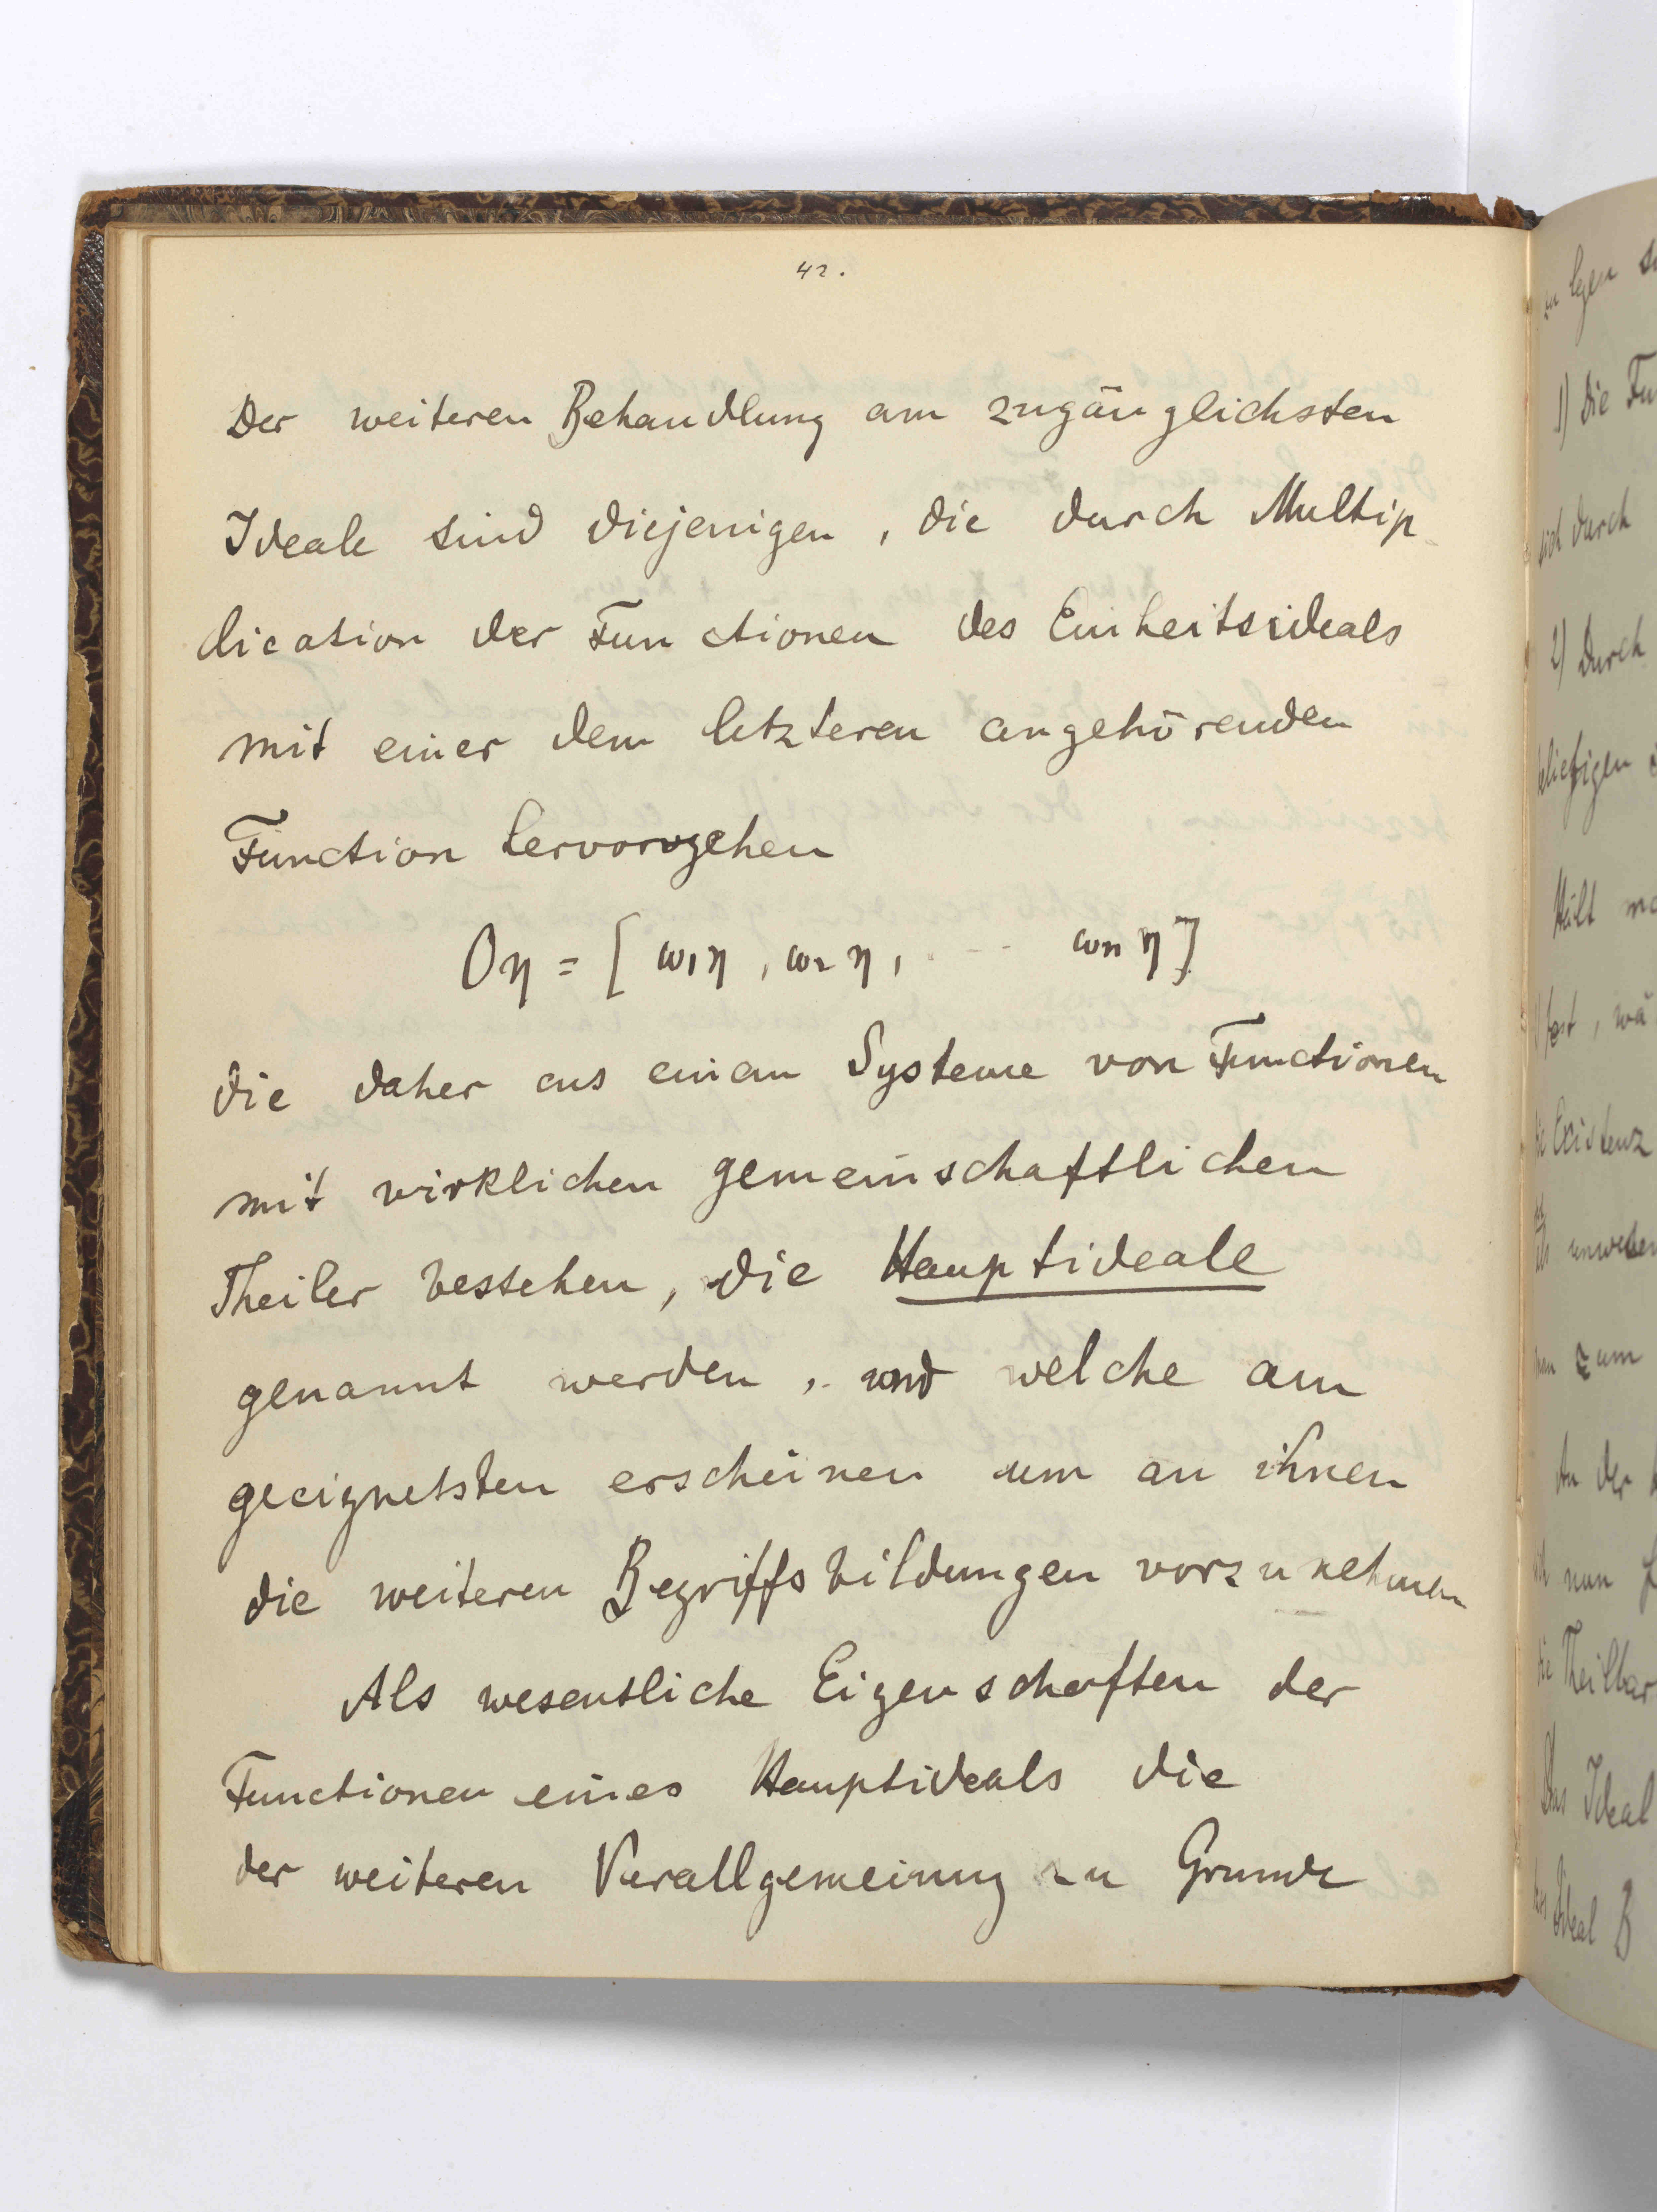 42.
Der weiteren Behandlung am zugänglichsten
Ideale sind diejenigen, die durch Multip-
lication der Functionen des Einheitsideals
mit einer dem letzteren angehörenden
Function hervorgehen
Oη = [ω₁η, ω₂η, ... ωₙη]
die daher aus einem Systeme von Functionen
mit wirklichen gemeinschaftlichen
Theiler bestehen, die Hauptideale
genannt werden, und welche am
geeignetsten erscheinen um an ihnen
die weiteren Begriffsbildungen vorzunehmen
Als wesentliche Eigenschaften der
Functionen eines Hauptideals die
der weiteren Verallgemeinung zu Grunde
1) Die
durch
2) Durch
beliebigen
Hält
fest, wä
Existenz
zum
An der
nun
die Theilbar
Das Ideal
Ideal